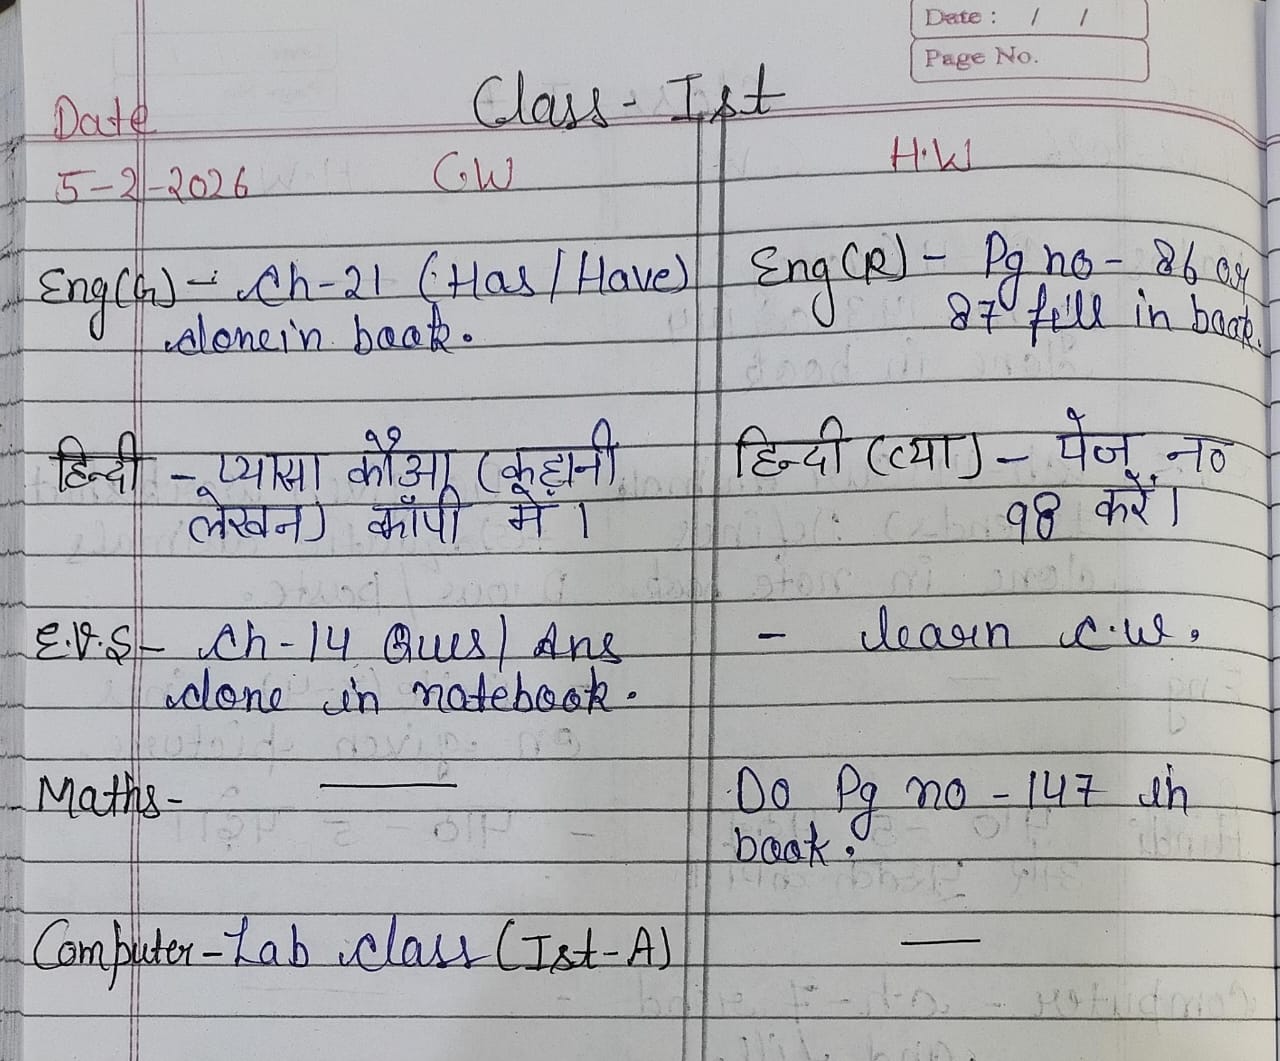 Date : / /
Page No.
Class - Ist
Date
5-2-2026 CW H.W
Eng(G) - Ch-21 (Has/Have) done in book.
Eng(R) - Pg no - 86 or 87 fill in book.
हिन्दी - प्यासा कौआ (कहानी लेखन) कॉपी में।
हिन्दी (व्या) - पेज न० 98 करें।
E.V.S - Ch-14 Ques/Ans done in notebook.
- learn c.w.
Maths - ——
Do Pg no - 147 in book.
Computer - Lab class (Ist-A) —